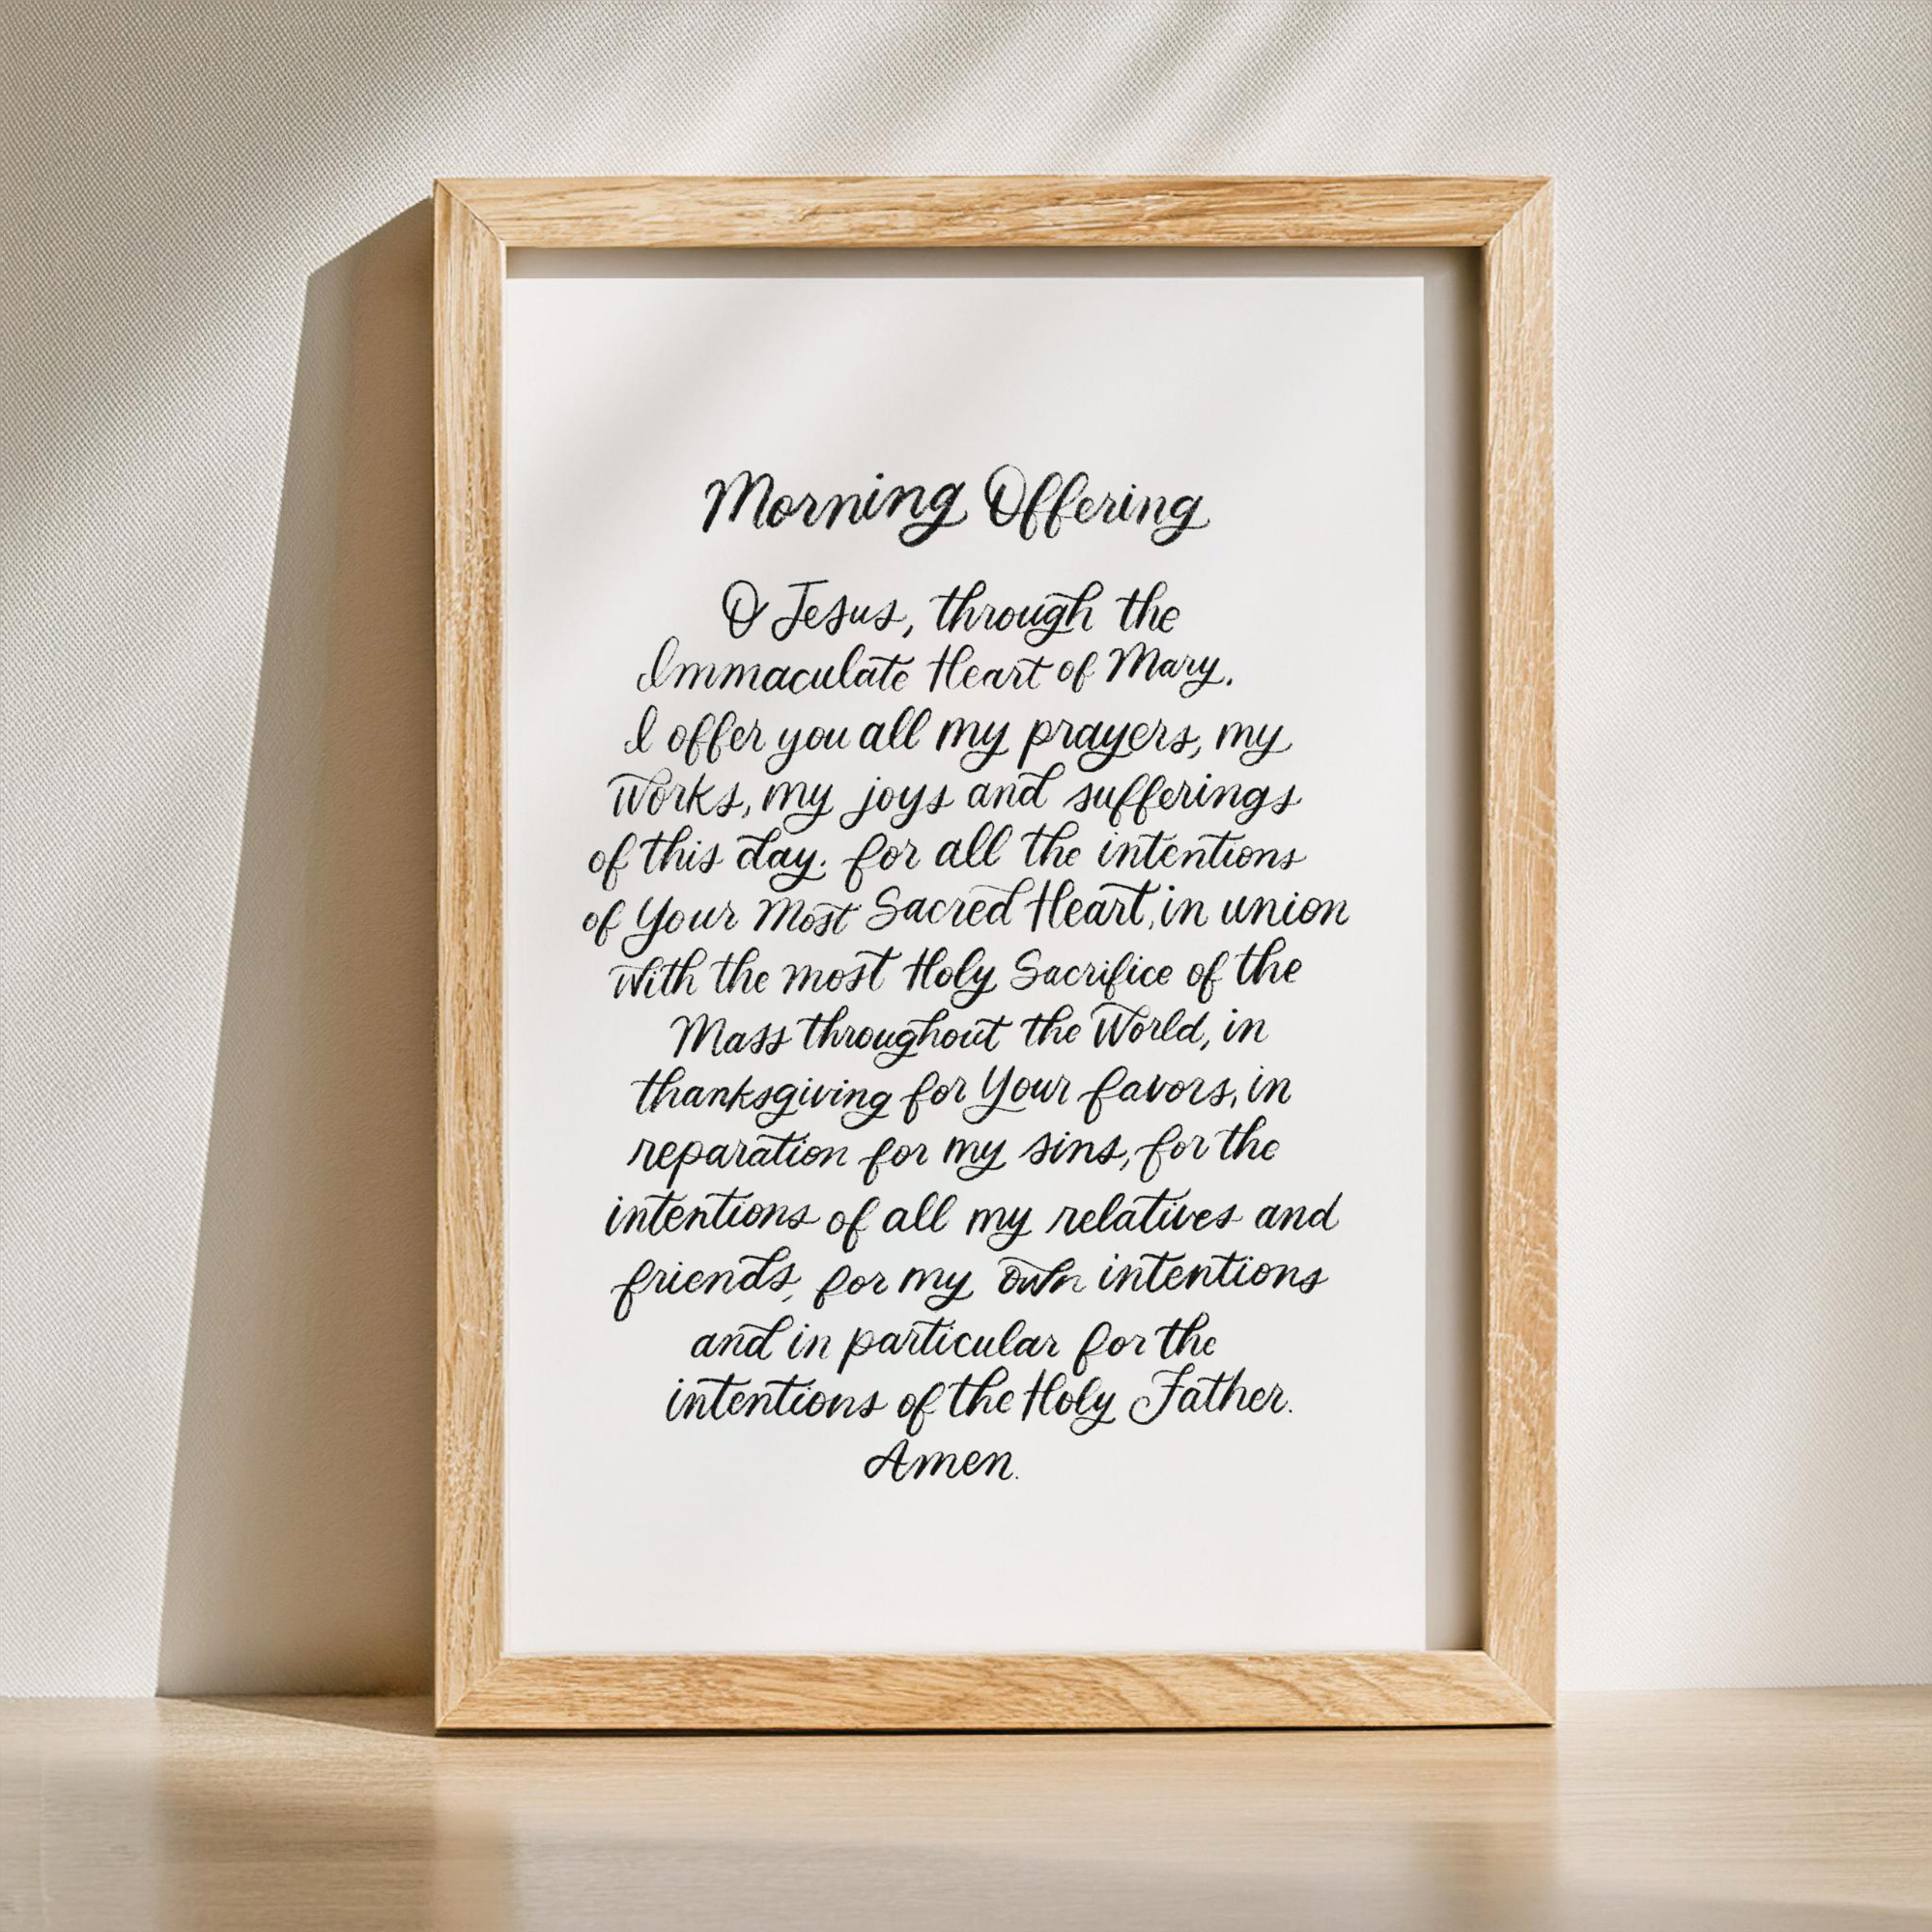 Morning Offering
O Jesus, through the
Immaculate Heart of Mary,
I offer you all my prayers, my
works, my joys and sufferings
of this day. for all the intentions
of Your Most Sacred Heart, in union
with the most Holy Sacrifice of the
Mass throughout the World, in
thanksgiving for Your favors, in
reparation for my sins, for the
intentions of all my relatives and
friends, for my own intentions
and in particular for the
intentions of the Holy Father.
Amen.